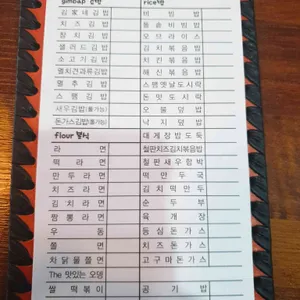 gimbap 김밥
김家네김밥
치즈김밥
참치김밥
샐러드김밥
소고기김밥
멸치견과류김밥
멸추김밥
스팸김밥
새우김밥(튀김)
돈가스김밥
rice 밥
비빔밥
돌솥비빔밥
오므라이스
김치볶음밥
해신볶음밥
스팸옛날도시락
돈까스도시락
오물덮밥
낙지덮밥
대게장밥도둑
철판치즈김치볶음밥
철판새우함박
떡만두국
김치떡만두
순두부
육개장
등심돈가스
치즈돈가스
고구마돈가스
공기밥
flour 분식
라면
떡라면
만두라면
치즈라면
김치라면
짬뽕라면
우동
쫄면
차닭물쫄면
The 맛있는 오뎅
쌀떡볶이